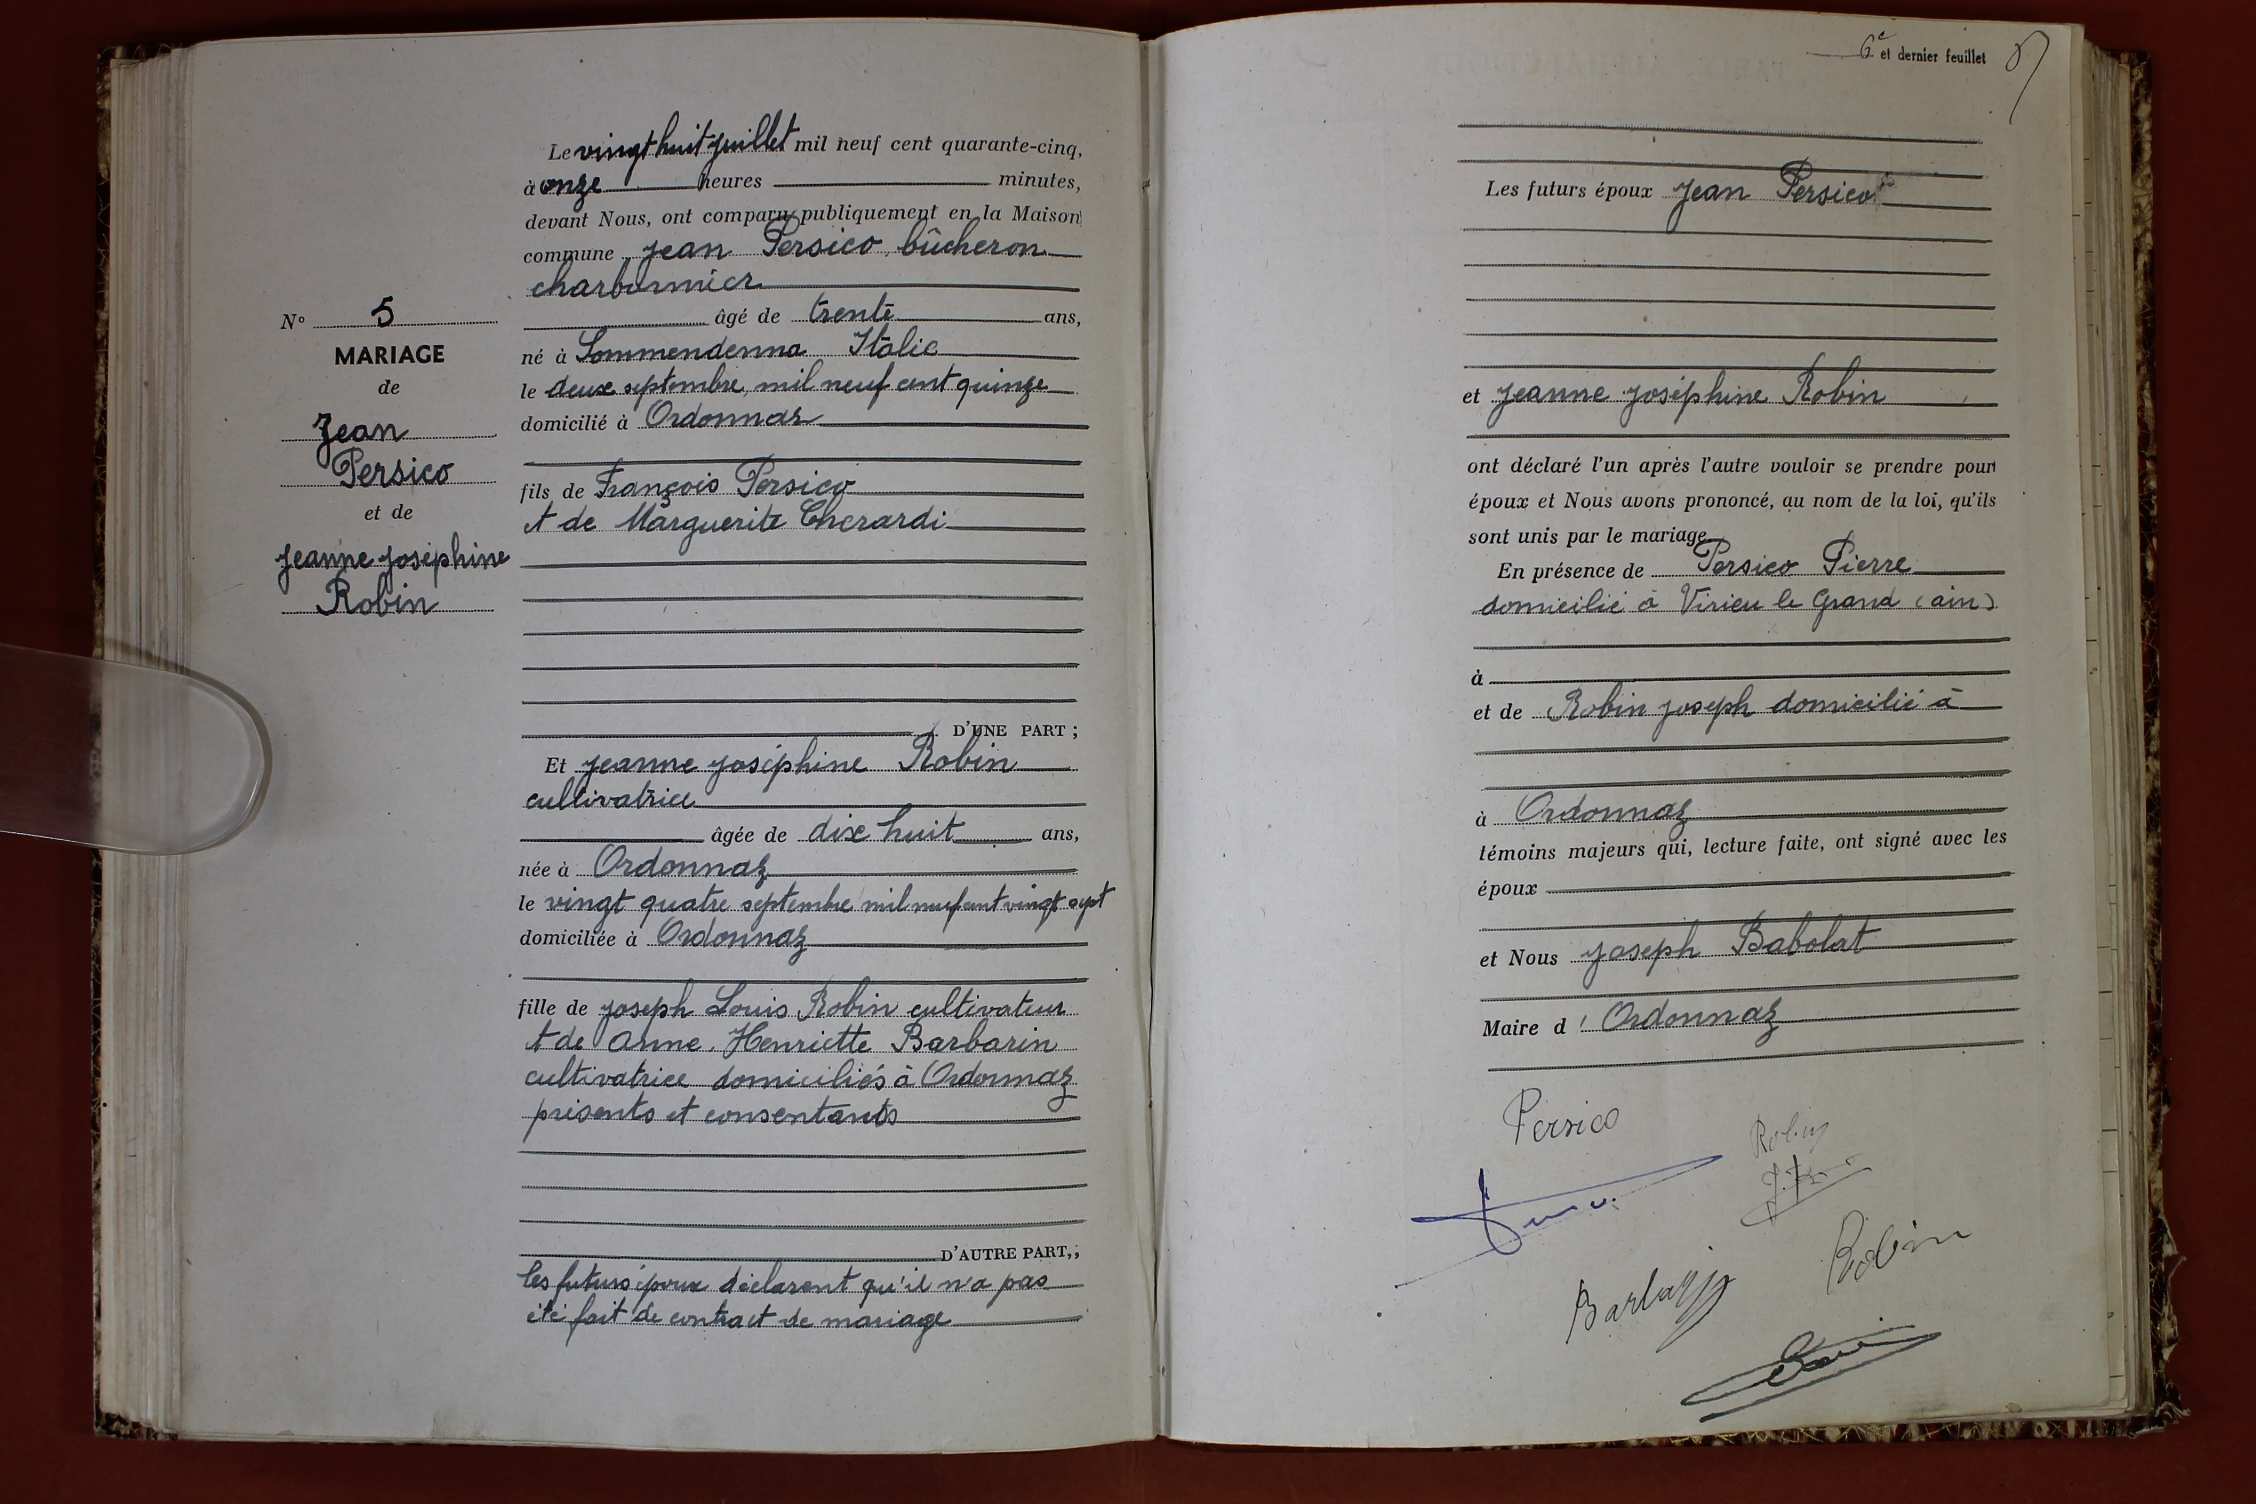 N° 5
MARIAGE
de
Jean
Persico
et de
Jeanne Joséphine
Robin
Le vingt huit juillet mil neuf cent quarante-cinq,
à onze heures minutes,
devant Nous, ont comparu publiquement en la Maison
commune Jean Persico, bûcheron
charbonnier
âgé de trente ans,
né à Sommendenna Italie
le deux septembre mil neuf cent quinze
domicilié à Ordonnaz
fils de François Persico
et de Marguerite Cherardi
D'UNE PART ;
Et Jeanne Joséphine Robin
cultivatrice
âgée de dix huit ans,
née à Ordonnaz
le vingt quatre septembre mil neuf cent vingt sept
domiciliée à Ordonnaz
fille de Joseph Louis Robin cultivateur
et de Anne Henriette Barbarin
cultivatrice domiciliés à Ordonnaz
présents et consentants
D'AUTRE PART,;
Les futurs époux déclarent qu'il n'a pas
été fait de contract de mariage
6e et dernier feuillet
Les futurs époux Jean Persico
et Jeanne Joséphine Robin
ont déclaré l'un après l'autre vouloir se prendre pour
époux et Nous avons prononcé, au nom de la loi, qu'ils
sont unis par le mariage
En présence de Persico Pierre
domicilié à Virieu le Grand (ain)
à
et de Robin Joseph domicilié à
à Ordonnaz
témoins majeurs qui, lecture faite, ont signé avec les
époux
et Nous Joseph Babolat
Maire d' Ordonnaz
Persico
Robin
Robin